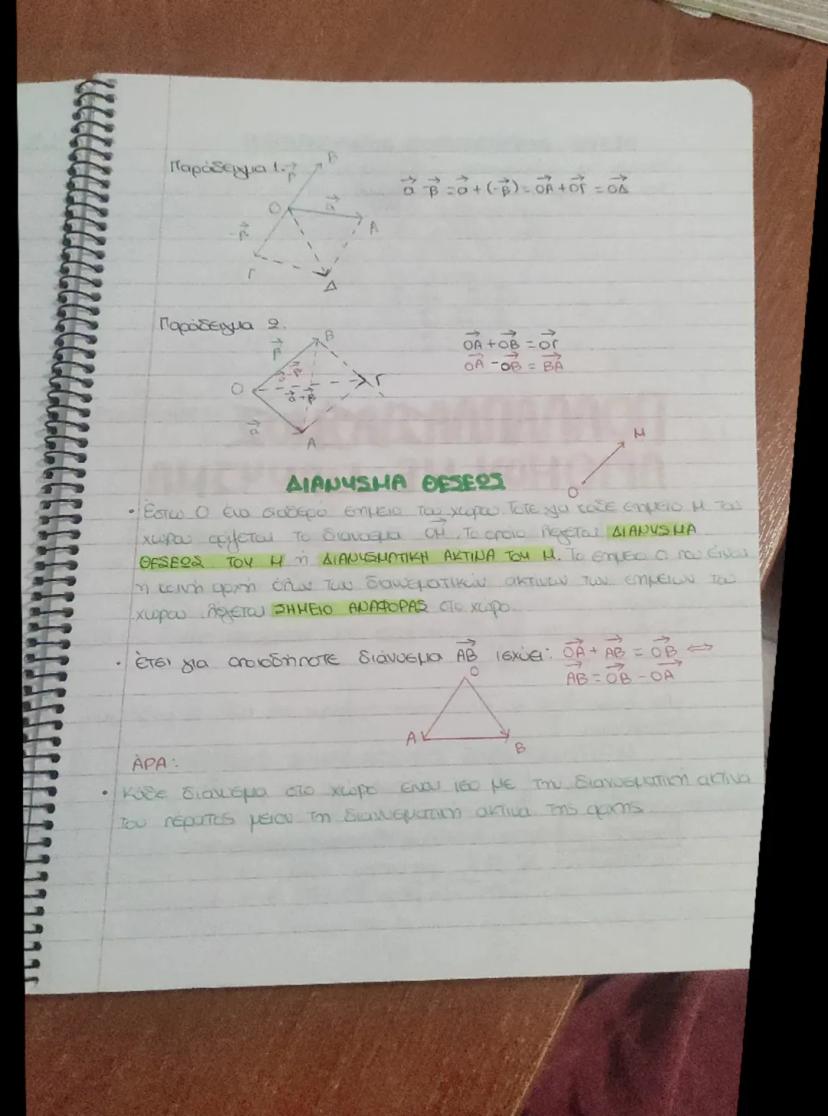 Παράδειγμα 1.
B
-β⃗
O
α⃗
A
-β⃗
Γ
Δ
α⃗ -β⃗ = α⃗ + (-β⃗) = OA⃗ + OΓ⃗ = OΔ⃗
Παράδειγμα 2.
B
β⃗
α⃗-β⃗
O
Γ
α⃗+β⃗
α⃗
A
OA⃗ + OB⃗ = OΓ⃗
OA⃗ - OB⃗ = BA⃗
M
O
ΔΙΑΝΥΣΜΑ ΘΕΣΕΩΣ
• Έστω Ο ένα σταθερό σημείο του χώρου. Τότε για κάθε σημείο Μ του
χώρου ορίζεται το διάνυσμα OM⃗, το οποίο λέγεται ΔΙΑΝΥΣΜΑ
ΘΕΣΕΩΣ ΤΟΥ Μ ή ΔΙΑΝΥΣΜΑΤΙΚΗ ΑΚΤΙΝΑ ΤΟΥ Μ. Το σημείο Ο που είναι
η κοινή αρχή όλων των διανυσματικών ακτίνων των σημείων του
χώρου λέγεται ΣΗΜΕΙΟ ΑΝΑΦΟΡΑΣ στο χώρο.
• Έτσι για οποιοδήποτε διάνυσμα AB⃗ ισχύει: OA⃗ + AB⃗ = OB⃗ ⇔
AB⃗ = OB⃗ - OA⃗
O
A
B
ΆΡΑ:
• Κάθε διάνυσμα στο χώρο είναι ίσο με την διανυσματική ακτίνα
του πέρατος μείον τη διανυσματική ακτίνα της αρχής.